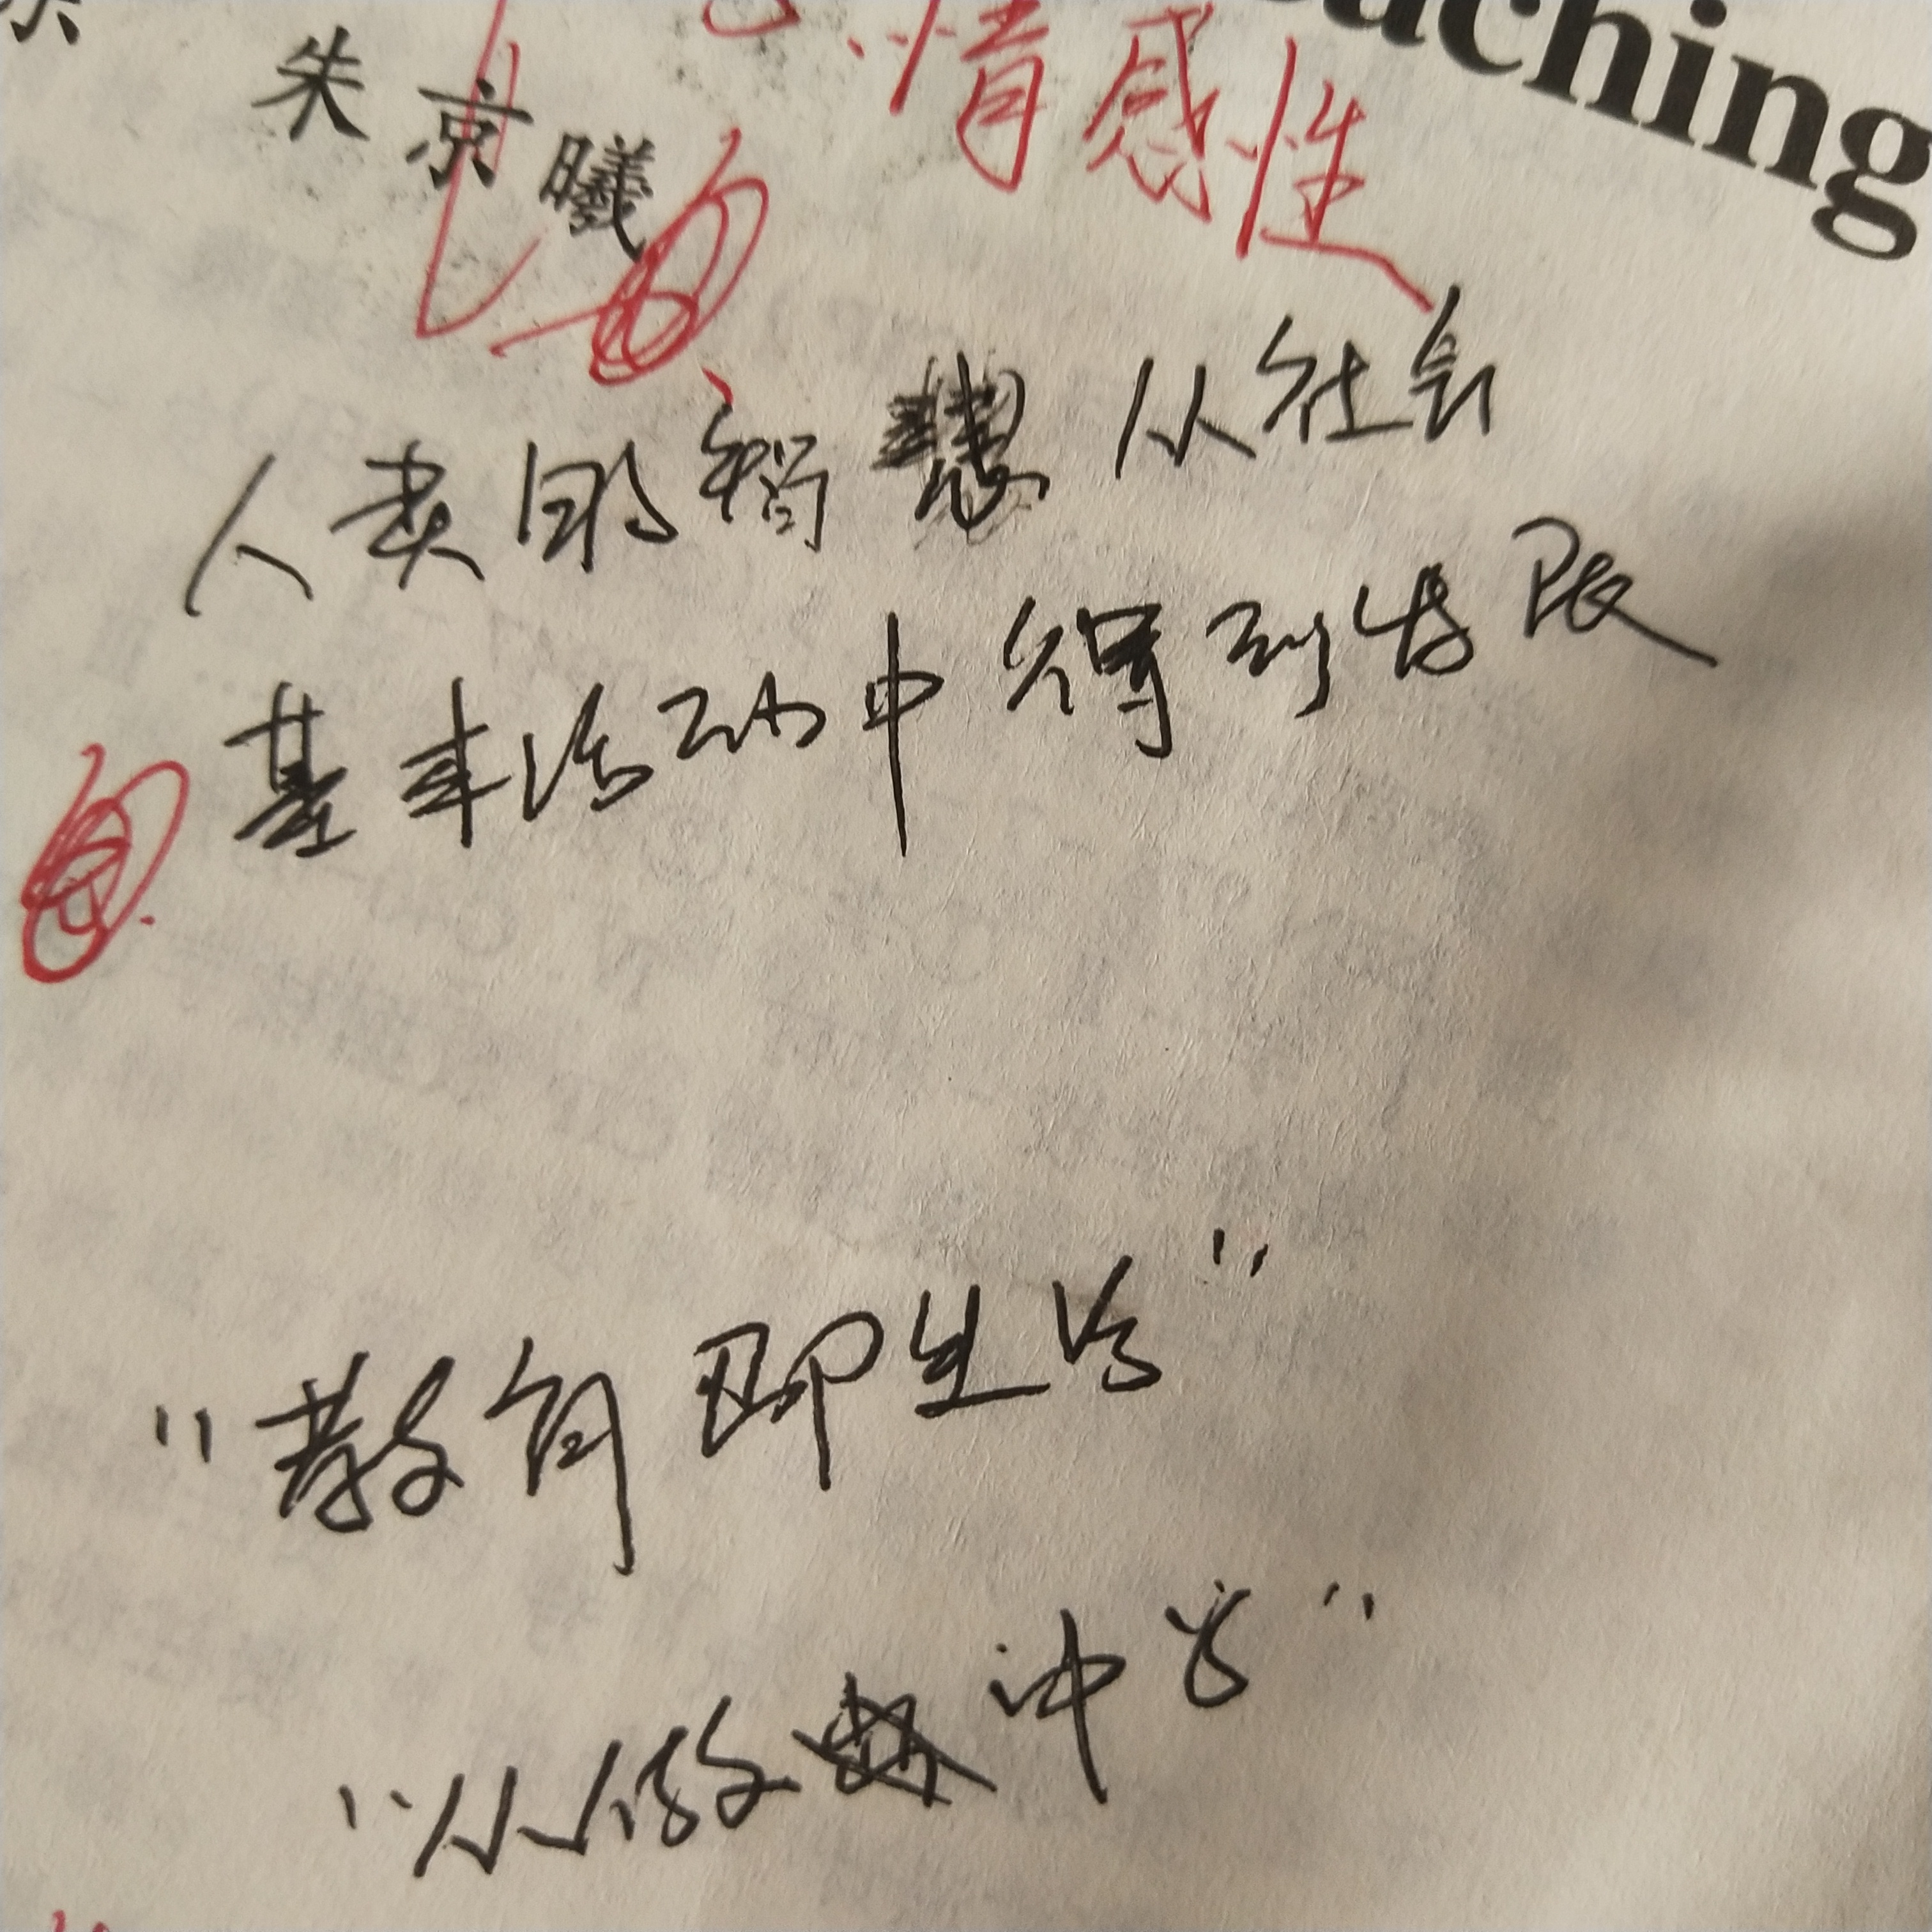 aching
情感性
朱京曦
人类的智慧从社会
基本活动中得到发展
"教育即生活"
"从做中学"